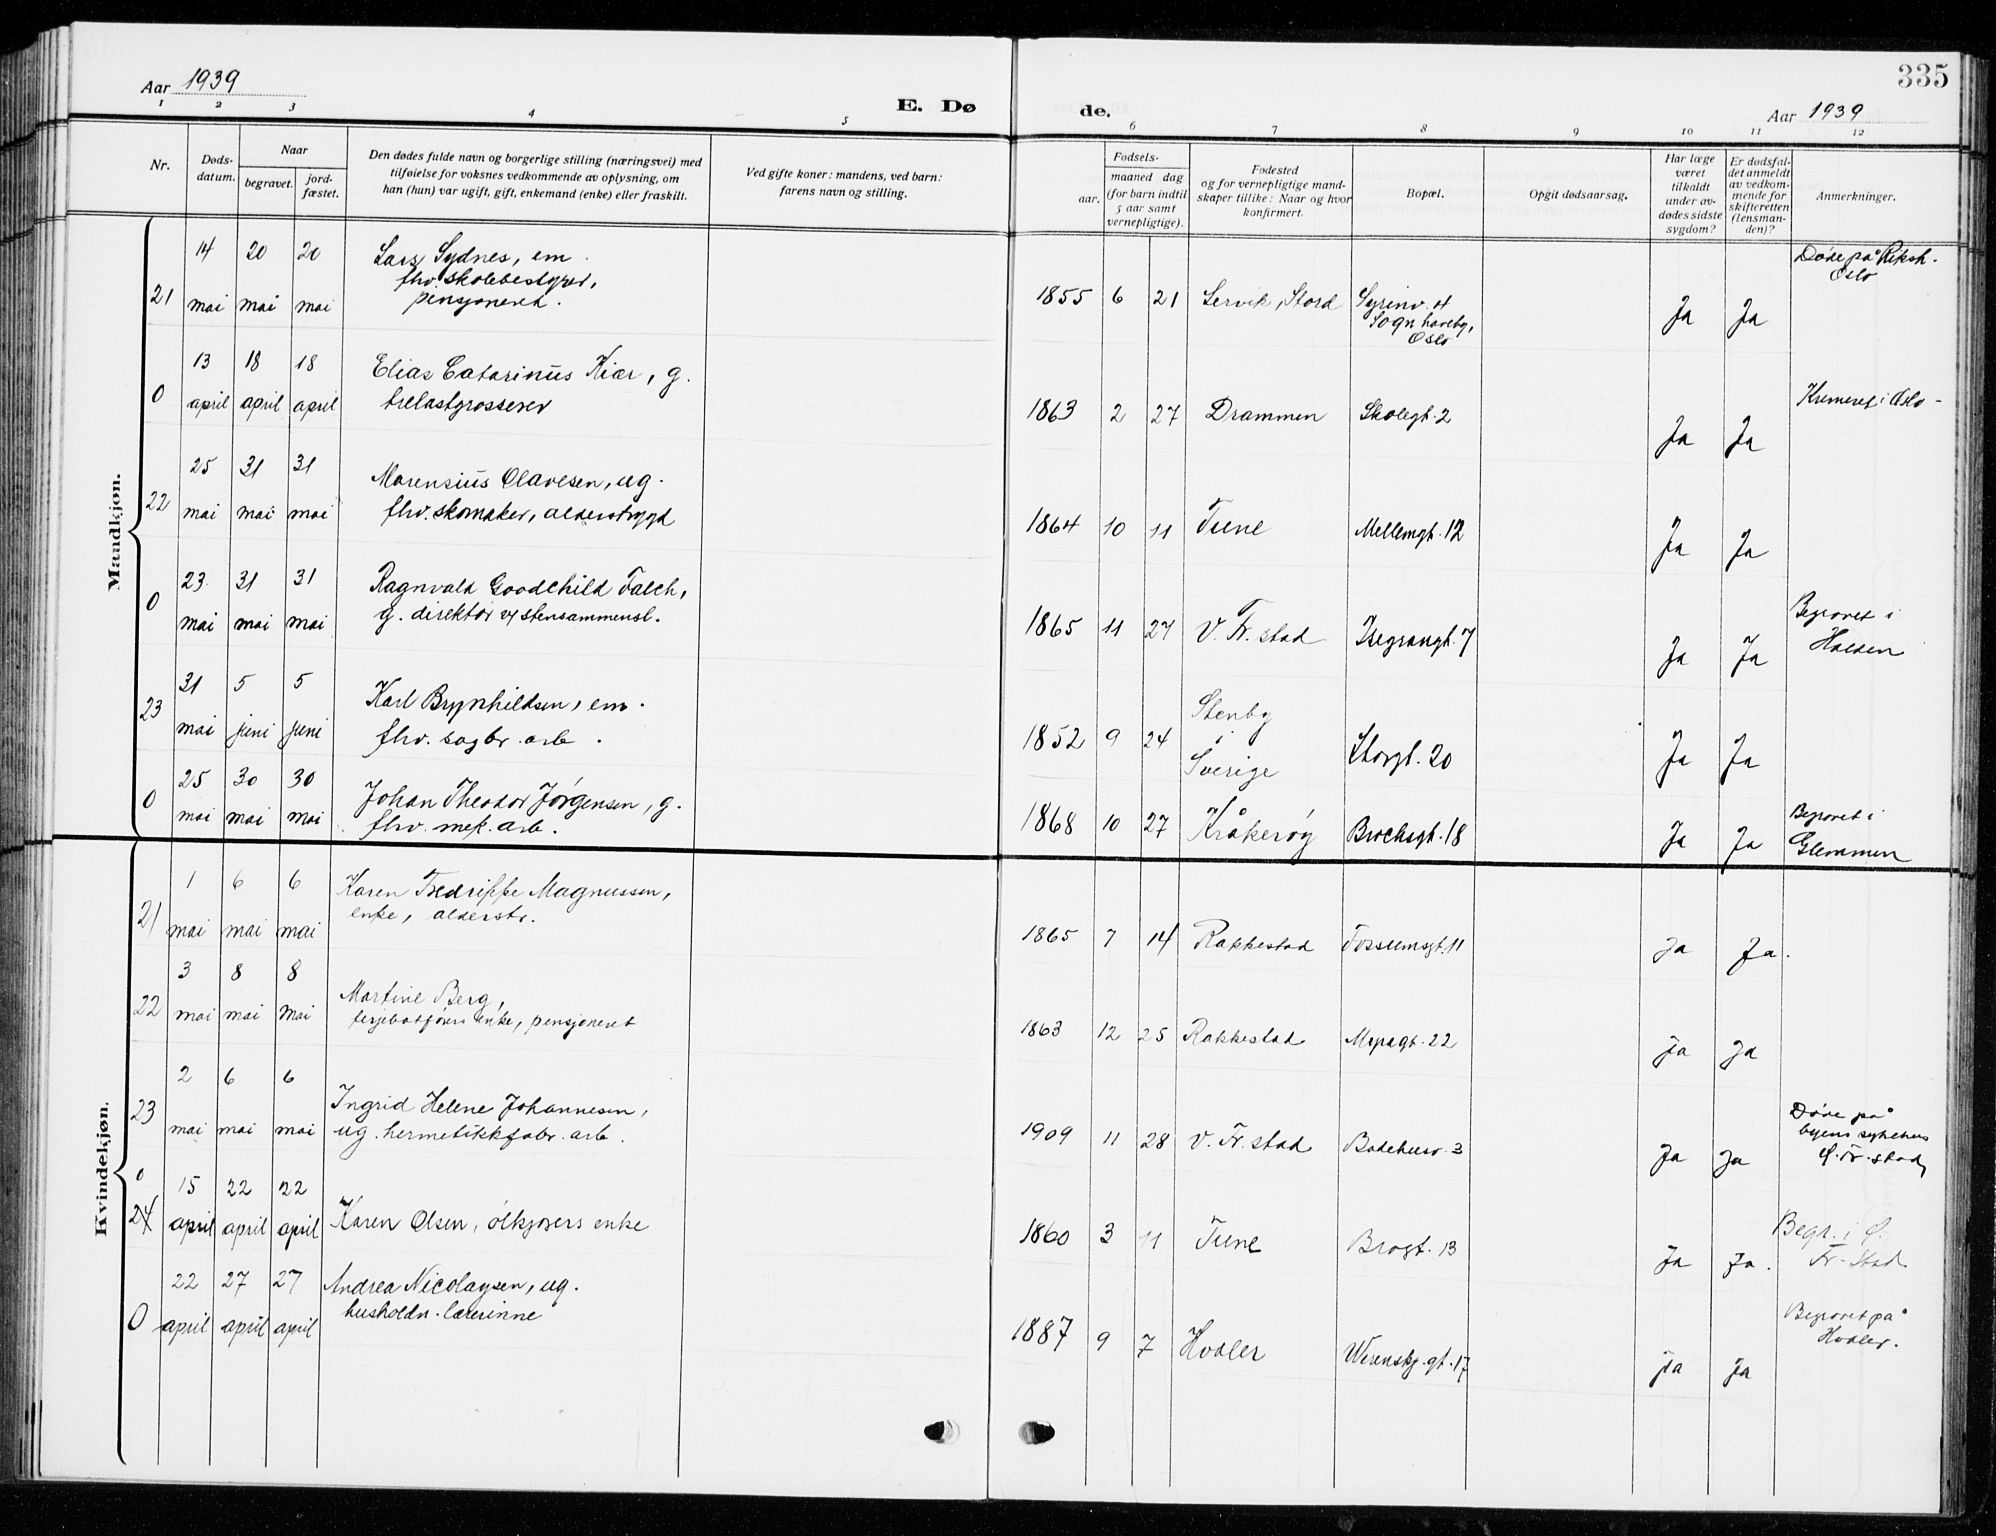 Aar 1939
335
E. Dø de.
Aar 1939
1 2 3 4 5 6 7 8 9 10 11 12
Nr.
Døds-
datum.
Naar
begravet.
jord-
fæstet.
Den dødes fulde navn og borgerlige stilling (næringsvei) med
tilføielse for voksnes vedkommende av oplysning, om
han (hun) var ugift, gift, enkemand (enke) eller fraskilt.
Ved gifte koner: mandens, ved barn:
farens navn og stilling.
Fødsels-
aar.
maaned dag
(for barn indtil
5 aar samt
vernepligtige).
Fødested
og for vernepligtige mand-
skaper tillike: Naar og hvor
konfirmert.
Bopæl.
Opgit dødsaarsag.
Har læge
været
tilkaldt
under av-
dødes sidste
sygdom?
Er dødsfal-
det anmeldt
av vedkom-
mende for
skifteretten
(lensman-
den)?
Anmerkninger.
Mandkjøn.
21 14 mai 20 mai 20 mai
Lars Sydnes, em.
fhv. skolebestyrer,
pensjoneret.
1855 6 21 Lervik, Stord
Syrinv. 4
Sogn haveby,
Oslo
Ja Ja
Døde på Riksh.
Oslo
0 13 april 18 april 18 april
Elias Catarinus Kiær, g.
trelastgrosserer
1863 2 27 Drammen Skolegt. 2 Ja Ja
Kremeret i Oslo -
22 25 mai 31 mai 31 mai
Marensius Olavesen, ug.
fhv. skomaker, alderstrygd
1864 10 11 Tune Mellemgt. 12 Ja Ja
0 23 mai 31 mai 31 mai
Ragnvald Goodchild Falch,
g. direktør v/ stensammensl.
1865 11 27 V. Fr. stad Isegrangt. 7 Ja Ja
Begravet i
Halden
23 31 mai 5 juni 5 juni
Karl Brynhildsen, em.
fhv. sagbr. arb.
1852 9 24
Stenby
i
Sverige
Storgt. 20 Ja Ja
0 25 mai 30 mai 30 mai
Johan Theodor Jørgensen, g.
fhv. mek. arb.
1868 10 27 Kråkerøy Brochsgt. 18 Ja Ja
Begravet i
Glemmen
Kvindekjøn.
21 1 mai 6 mai 6 mai
Karen Fredrikke Magnussen,
enke, alderstr.
1865 7 14 Rakkestad Fossumsgt. 11 Ja Ja.
22 3 mai 8 mai 8 mai
Martine Berg,
ferjebotførers enke, pensjoneret
1863 12 25 Rakkestad Myragt. 22 Ja Ja
23 2 mai 6 mai 6 mai
Ingrid Helene Johannesen,
ug. hermetikkfabr. arb.
1909 11 28 V. Fr. stad Badehusv. 3 Ja Ja
Døde på
byens sykehus
Ø. Fr. stad
0
24 15 april 22 april 22 april
Karen Olsen, ølkjørers enke
1860 3 11 Tune Brogt. 13 Ja Ja.
Begr. i Ø.
Fr. Stad
0 22 april 27 april 27 april
Andrea Nicolaysen, ug.
husholdn. lærerinne
1887 9 7 Hvaler Werenskj. gt. 17 Ja Ja
Begravet på
Hvaler.